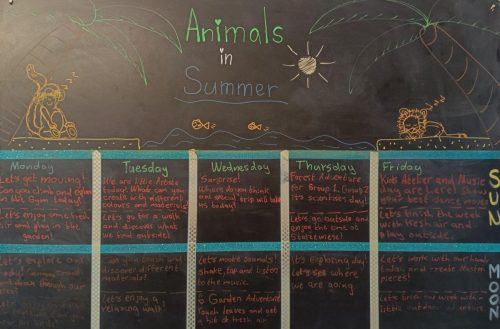 Animals
in
Summer
Monday
Let's get moving!
Can you climb and
our Gym today!
Let's enjoy some fresh
air and play in the
garden.
Let's explore
today!
dance through our
Tuesday
We are little Artists
today! What can you
create with different
colours and materials?
Let's go for a walk
and discover what
we find outside!
Let's
and
discover different
materials!
Let's enjoy a
relaxing walk!
Wednesday
Surprise!
Where do you think
our special trip will take
us today!
Let's make sounds!
Shake, tap and listen
to the music.
Garden Adventure
Touch leaves and get
a bit of fresh air
Thursday
Forest Adventure
for Group 1, Group 2
It's scientist day!
Let's go outside and
enjoy the time at
It's exploring day!
Let's see where
we are going
Friday
Kids Atelier and Music
Day are here!
your best dance moves
Let's finish the week
with fresh air and
play outside.
Let's work with our hands
today and create Master
pieces!
Let's end our week with a
little outdoor adventure
SUN
MOON